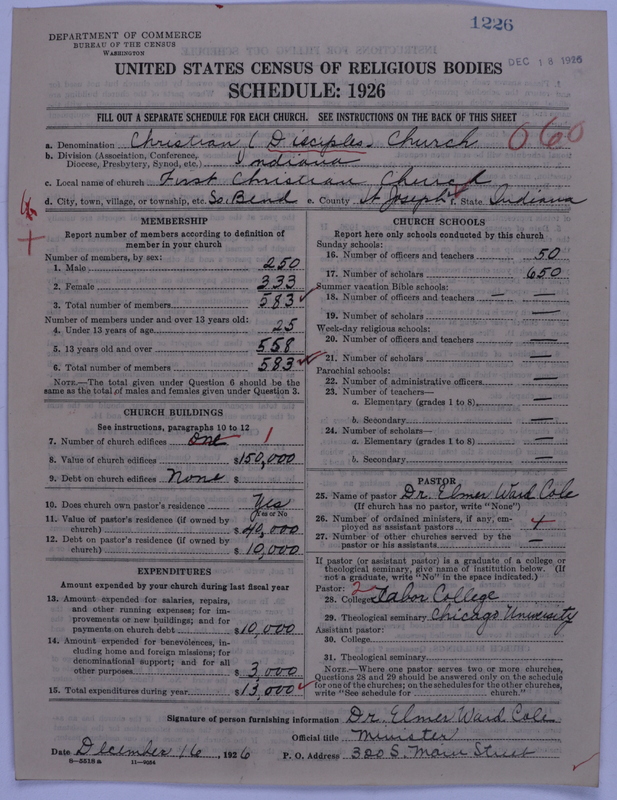 1226
DEPARTMENT OF COMMERCE
BUREAU OF THE CENSUS
WASHINGTON
DEC 18 1926
UNITED STATES CENSUS OF RELIGIOUS BODIES
SCHEDULE: 1926
FILL OUT A SEPARATE SCHEDULE FOR EACH CHURCH. SEE INSTRUCTIONS ON THE BACK OF THIS SHEET
a. Denomination Christian (Disciples Church 060
b. Division (Association, Conference,
Diocese, Presbytery, Synod, etc.) Indiana
c. Local name of church First Christian Church
d. City, town, village, or township, etc. So. Bend e. County St Joseph f. State Indiana
MEMBERSHIP
Report number of members according to definition of
member in your church
Number of members, by sex:
1. Male 250
2. Female 333
3. Total number of members 583
Number of members under and over 13 years old:
4. Under 13 years of age 25
5. 13 years old and over 558
6. Total number of members 583
NOTE.—The total given under Question 6 should be the
same as the total of males and females given under Question 3.
CHURCH BUILDINGS
See instructions, paragraphs 10 to 12
7. Number of church edifices one 1
8. Value of church edifices $150,000
9. Debt on church edifices None $
10. Does church own pastor's residence Yes
(Yes or No
11. Value of pastor's residence (if owned by
church) $40,000
12. Debt on pastor's residence (if owned by
church) $10,000
EXPENDITURES
Amount expended by your church during last fiscal year
13. Amount expended for salaries, repairs,
and other running expenses; for im-
provements or new buildings; and for
payments on church debt $10,000
14. Amount expended for benevolences, in-
cluding home and foreign missions; for
denominational support; and for all
other purposes $3,000
15. Total expenditures during year $13,000
CHURCH SCHOOLS
Report here only schools conducted by this church
Sunday schools:
16. Number of officers and teachers 50
17. Number of scholars 650
Summer vacation Bible schools:
18. Number of officers and teachers — —
19. Number of scholars —
Week-day religious schools:
20. Number of officers and teachers —
21. Number of scholars —
Parochial schools:
22. Number of administrative officers —
23. Number of teachers—
a. Elementary (grades 1 to 8) —
b. Secondary —
24. Number of scholars—
a. Elementary (grades 1 to 8) —
b. Secondary —
PASTOR
25. Name of pastor Dr. Elmer Ward Cole
(If church has no pastor, write "None")
26. Number of ordained ministers, if any, em-
ployed as assistant pastors
27. Number of other churches served by the
pastor or his assistants —
If pastor (or assistant pastor) is a graduate of a college or
theological seminary, give name of institution below. (If
not a graduate, write "No" in the space indicated.)
Pastor: 2
28. College Tabor College
29. Theological seminary Chicago University
Assistant pastor:
30. College
31. Theological seminary
NOTE.—Where one pastor serves two or more churches,
Questions 28 and 29 should be answered only on the schedule
for one of the churches; on the schedules for the other churches,
write "See schedule for church."
Signature of person furnishing information Dr. Elmer Ward Cole
Official title Minister
Date December 16, 1926 P. O. Address 320 S. Main Street
8—5518 a 11—9024